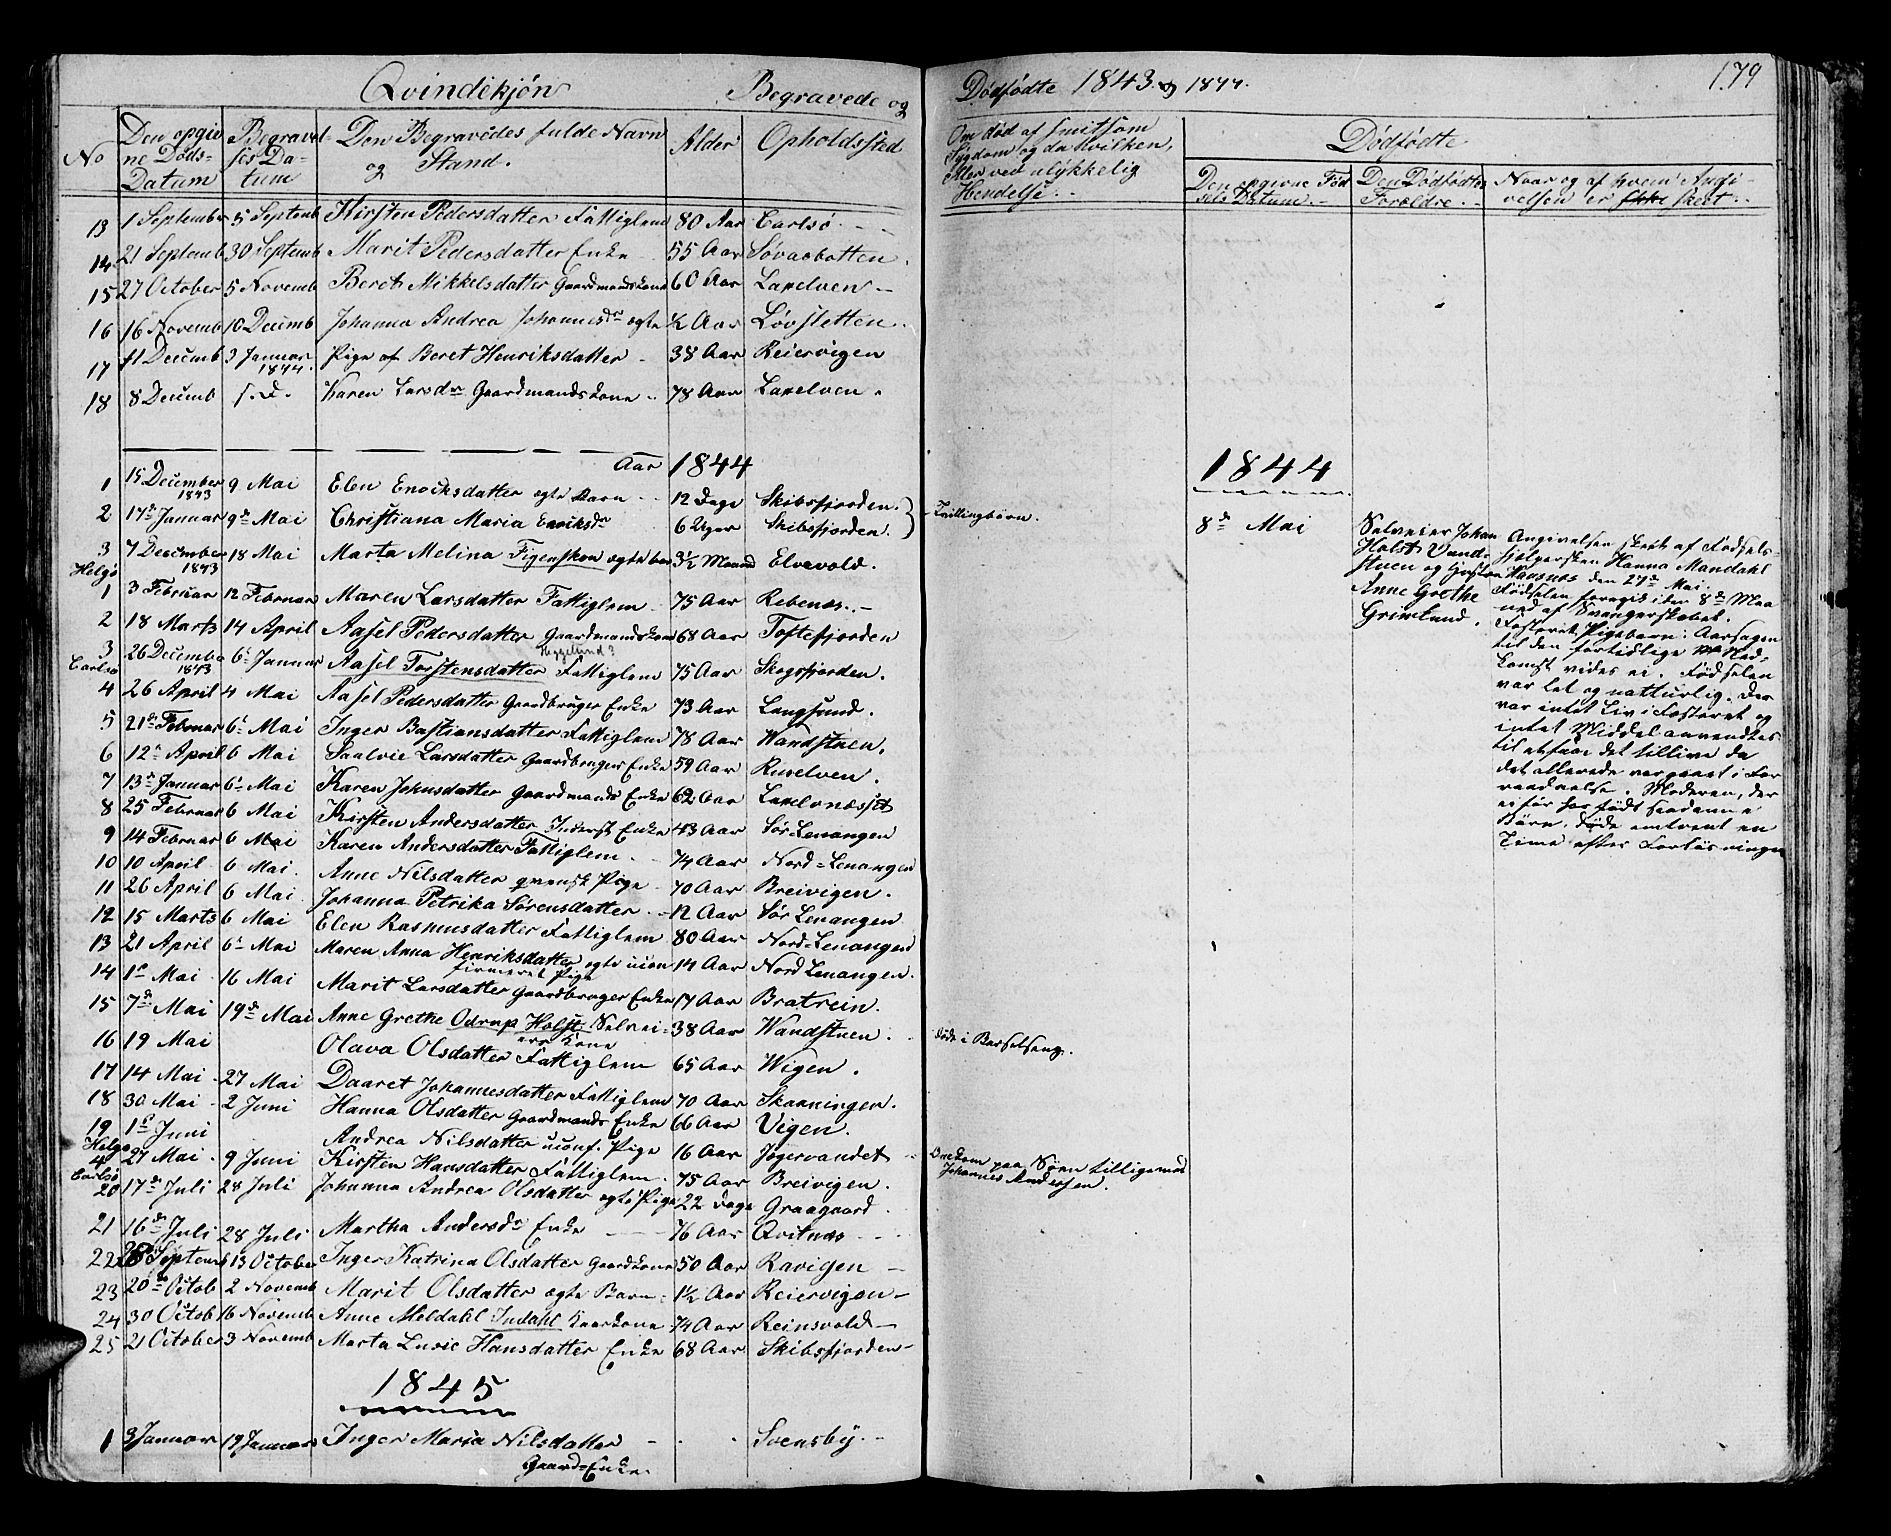 Qvindekjøn Begravede og Dødfødte 1843 og 1844. 179
No
Den opgivne Døds-Datum
Begravelses Datum
Den Begravedes fulde Navn og Stand.
Alder
Opholdssted
Om død af smitsom Sygdom og da hvilken, eller ved ulykkelig Hendelse.
Dødfødte
Den opgivne Fødsels Datum.
Den Dødfødtes Forældre.
Naar og af hvem Angivelsen er skeet.
13 1 September 5 Septemb Kirsten Pedersdatter Fattiglem 80 Aar Carlsö.
14 21 Septemb 30 Septemb Marit Pedersdatter Enke 55 Aar Søvasbotten.
15 27 October 5 Novemb Beret Mikkelsdatter Gaardmandskone 60 Aar Laxelven
16 16 Novemb 10 Decemb Johanna Andrea Johannesdr ægte ½ Aar Løvsletten.
17 11 Decemb 3 Januar 1844. Pige af Beret Henriksdatter 38 Aar Reiervigen
18 8 Decemb s.d. Karen Larsdr Gaardmandskone 78 Aar Laxelven.
Aar 1844
1 15 December 1843 9 Mai Elen Enocksdatter ægte Barn 12 Dage Skibsfjorden.
2 17de Januar 9de Mai Christiana Maria Enoksdr 6 Uger Skibsfjorden. Tvillingbørn.
3 7 December 1843 18 Mai Marta Melina Figenskou ægte barn 3½ Maaned Elvevold.
Helgö
1 3 Februar 12 Februar Maren Larsdatter Fattiglem 75 Aar Rebenæs.
2 18 Marts 14 April Aasel Pedersdatter Gaardmandskone 68 Aar Toftefjorden
Heggelund?
3 26 Decemb 1843 6 Januar Aasel Torstensdatter Fattiglem 75 Aar Skogsfjorden.
Carlsö
4 26 April 4 Mai Aasel Pedersdatter Gaardbruger Enke 73 Aar Langsund.
5 21de Februar 6 Mai Inger Bastiansdatter Fattiglem 78 Aar Vandstuen.
6 12 April 6 Mai Saalvie Larsdatter Gaardbruger Enke 59 Aar Ruselven.
7 13 Januar 6 Mai Karen Johnsdatter Gaardmands Enke 62 Aar Laxelvnæsset
8 25 Februar 6 Mai Kirsten Andersdatter Inderst Enke 43 Aar Sör-Lenangen
9 14 Februar 6 Mai Karen Andersdatter Fattiglem. 74 Aar Nord-Lenangen
10 10 April 6 Mai. Anne Nilsdatter qvensk Pige 70 Aar Breivigen.
11 26 April 6 Mai Johanna Petrika Sörensdatter 12 Aar Sör Lenangen
12 15 Marts 6 Mai Elen Rasmusdatter Fattiglem 80 Aar Nord-Lenangen
13 21 April 6 Mai Maren Anna Henriksdatter ægte ucon 14 Aar Nord Lenangen.
firmeret Pige
14 1ste Mai 16 Mai Marit Larsdatter Gaardbruger Enke 17 Aar Bratrein.
15 7de Mai 19de Mai Anne Grethe Odrup Holst Selvei- 38 Aar Vandstuen. Døde i Barselseng.
ers Kone
16 19 Mai Olava Olsdatter Fattiglem 65 Aar Vigen.
17 14 Mai 27 Mai Daaret Johannesdatter Fattiglem 70 Aar Skaaningen.
18 30 Mai 2 Juni Hanna Olsdatter Gaardmands Enke 66 Aar Vigen.
19 1ste Juni Andrea Nilsdatter uconf. Pige 16 Aar Jøgervandet Omkom paa Søen tilligemed Johannes Andersen.
Helgö
4 27 Mai 9 Juni Kirsten Hansdatter Fattiglem 75 Aar Breivigen.
Carlsö
20 17de Juli 28 Juli Johanna Andrea Olsdatter ægte Pige 22 Dage Graagaard.
21 16de Juli 28 Juli Martha Andersdr Enke 76 Aar Qvitnæs
22 28 Septem 13 October Inger Katrina Olsdatter Gaardkone 50 Aar Ravigen
23 20de Octob 2 Novemb Marit Olsdatter ægte Barn 1½ Aar Reiervigen
24 30 Octob 16 Novemb Anne Meldahl Indahl Kaarkone 74 Aar Reinsvold
25 21 October 3 Novemb Marta Lusie Hansdatter Enke 68 Aar Skibsfjorden
1845
1 3 Januar 19 Januar Inger Maria Nilsdatter Svensby.
Gaard-Enke.
1844
8de Mai
Selveier Johan
Holst Vand-
stuen og Hustru
Anne Grethe
Grimlund.
Angivelsen skeet af Fødsels-
hjelpersken Hanna Mandahl
Hansnæs den 27de Mai.
Fødselen foregik i den 8de Maa
ned af Svangerskabet.
Fosteret Pigebarn: Aarsagen
til den fortidlige Ned-
komst vides ei. Fødselen
var let og naturlig. Der
var intet Liv i Fosteret og
intet Middel anvendtes
til at faae det tillive da
det allerede var gaaet i For
raadnelse. Moderen, der
ei før har født saadanne
Børn, døde omtrent en
Time efter Forløsningen